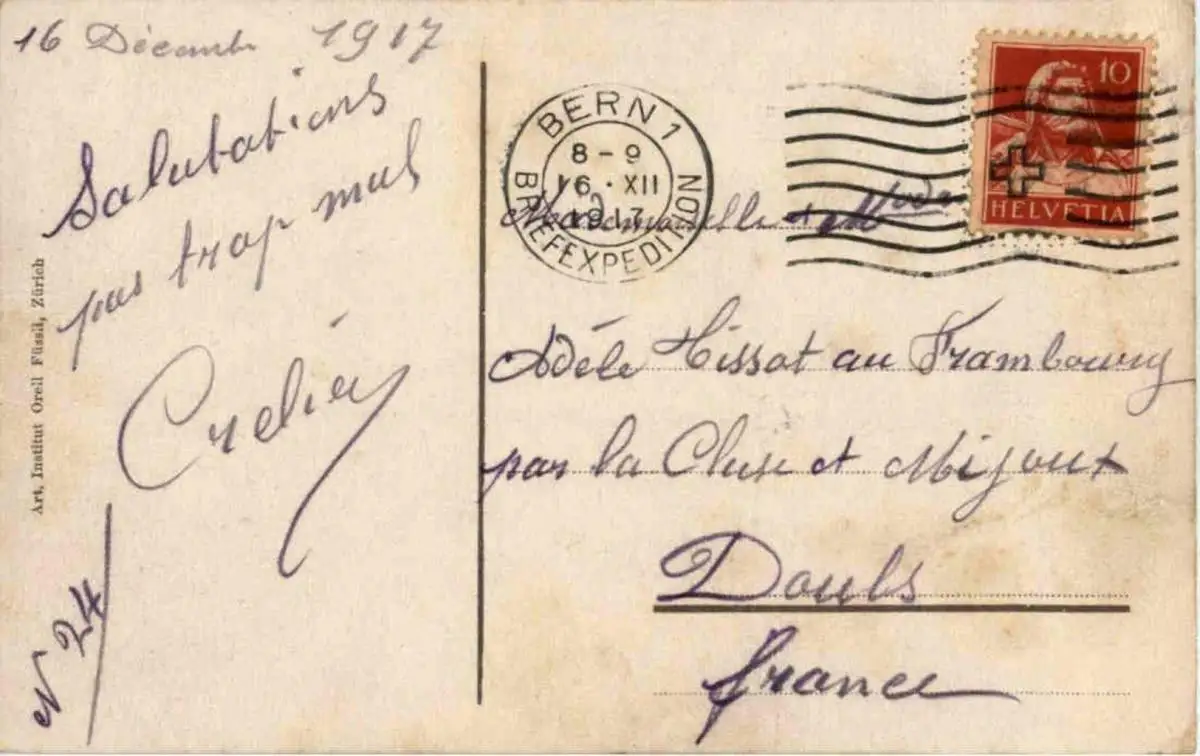 16 Décembre 1917
Salutations
pas trop mal
Crelier
N° 24
Art. Institut Orell Füssli, Zürich
BERN 1
8-9
16. XII
1917
BRIEFEXPEDITION
10
HELVETIA
Mademoiselle
Adèle Tissot au Frambourg
par la Cluse et Mijoux
Doubs
france